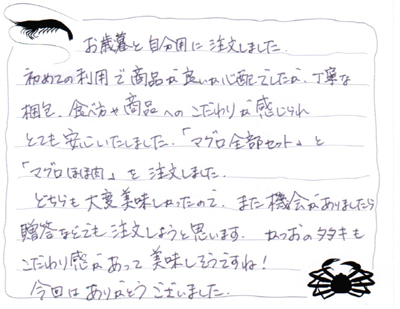 お歳暮と自分用に注文しました.
初めての利用で商品が良いか心配でしたが、丁寧な
梱包、食べ方や商品へのこだわりが感じられ
とても安心いたしました.「マグロ全部セット」と
「マグロほほ肉」を注文しました.
どちらも大変美味しかったので、また機会がありましたら
贈答などでも注文しようと思います. かつおのタタキも
こだわり感があって美味しそうですね!
今回はありがとうございました.